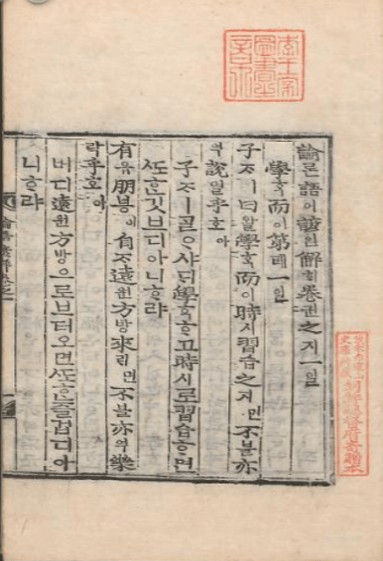 論론語어諺언解ᄒᆡ卷권之지一일
學ᄒᆞᆨ而이第뎨一일
子ᄌᆞㅣ曰왈學ᄒᆞᆨ而이時시習습之지면不블亦
역說열乎호아
子ᄌᆞㅣᄀᆞᆯᄋᆞ샤ᄃᆡ學ᄒᆞᆨᄒᆞ고時시로習습ᄒᆞ면
ᄯᅩᄒᆞᆫ깃브디아니ᄒᆞ랴
有유朋붕이自ᄌᆞ遠원方방來ᄅᆡ면不블亦역樂
락乎호아
버디遠원方방으로브터오면ᄯᅩᄒᆞᆫ즐겁디아
니ᄒᆞ랴
論語諺解卷之一